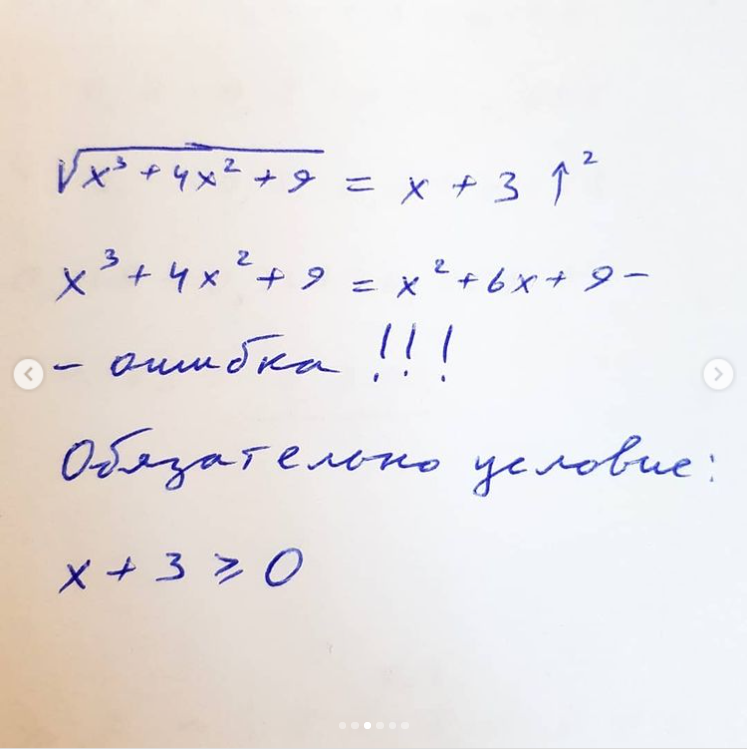 √(x³ + 4x² + 9) = x + 3 ↑²
x³ + 4x² + 9 = x² + 6x + 9 –
– ошибка !!!
Обязательно условие:
x + 3 ⩾ 0